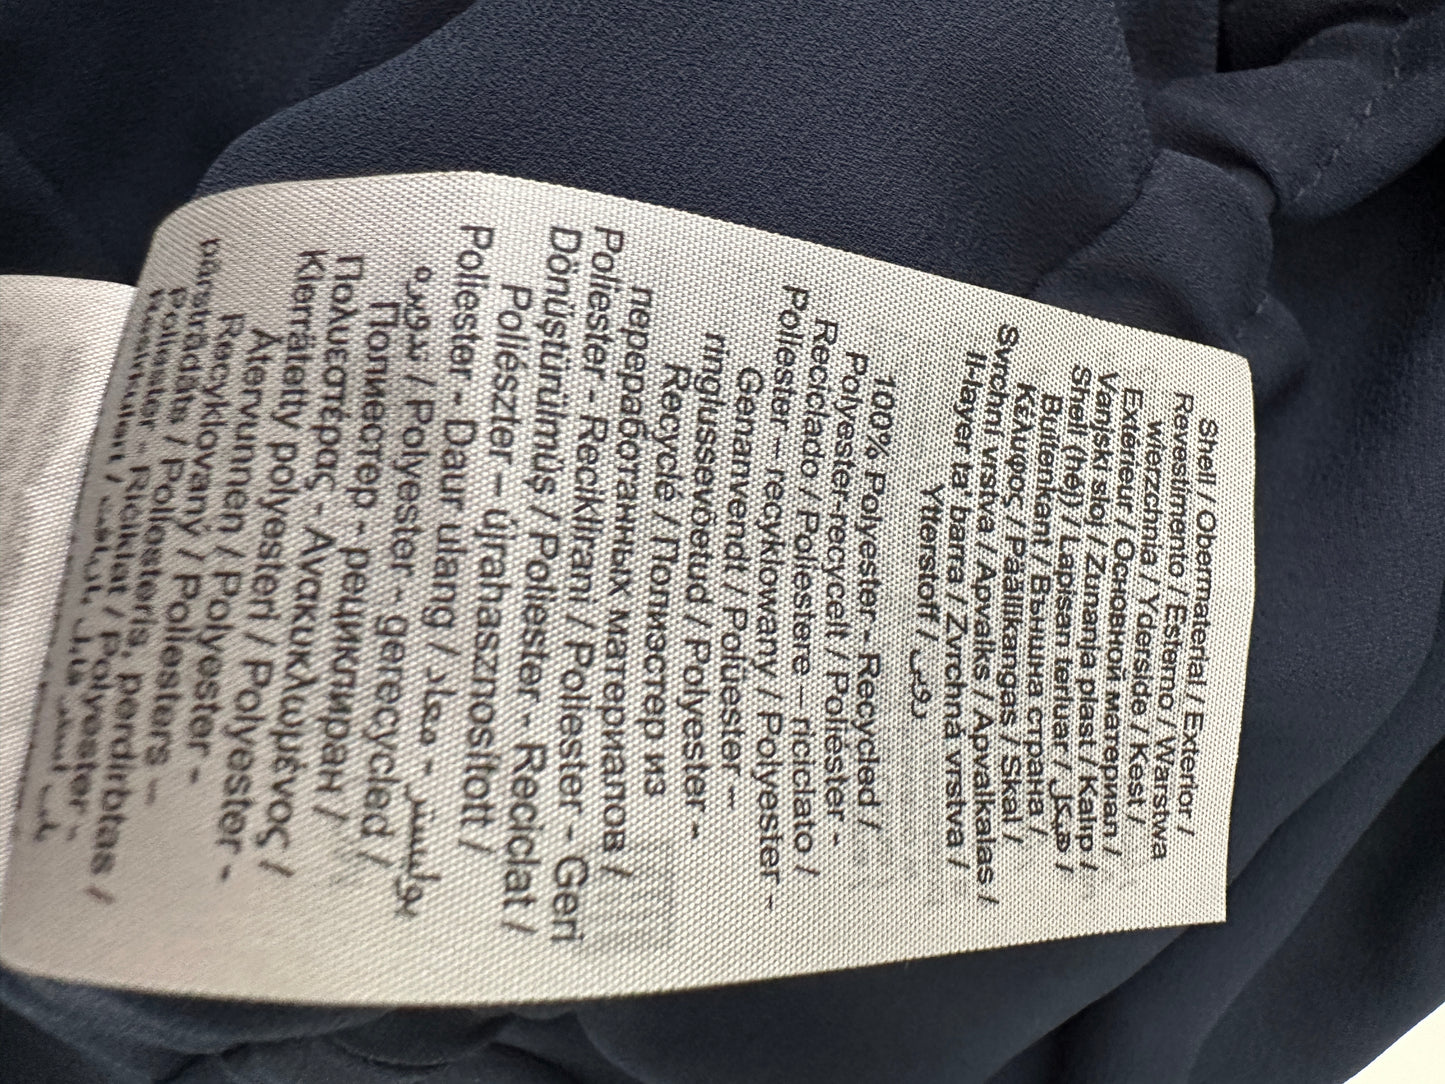 Shell / Obermaterial / Exterior /
Revestimento / Esterno / Warstwa
wierzchnia / Yderside / Kest /
Extérieur / Основной материал /
Vanjski sloj / Zunanja plast / Kalıp /
Shell (héj) / Lapisan terluar / هيكل /
Buitenkant / Външна страна /
Κέλυφος / Päällikangas / Skal /
Svrchní vrstva / Apvelks / Apvalkalas /
Il-layer ta' barra / Zvrchná vrstva /
Ytterstoff /
100% Polyester - Recycled /
Polyester-recycelt / Poliéster -
Reciclado / Poliestere – riciclato /
Poliester – recyklowany / Polyester -
Genanvendt / Polüester –
ringlussevõetud / Polyester -
Recyclé / Полиэстер из
переработанных материалов /
Poliester - Reciklirani / Poliester - Geri
Dönüştürülmüş / Poliester - Reciclat /
Poliészter – újrahasznosított /
Poliester - Daur ulang / بوليستر - معاد
تدويره / Polyester - gerecycled /
Полиестер - рециклиран /
Πολυεστέρας - Ανακυκλωμένος /
Kierrätetty polyesteri / Polyester -
Återvunnen / Polyester -
Recyklovaný / Poliesters –
pārstrādāts / Poliesteris, perdirbtas /
Poliester- Riċiklat / Polyester -